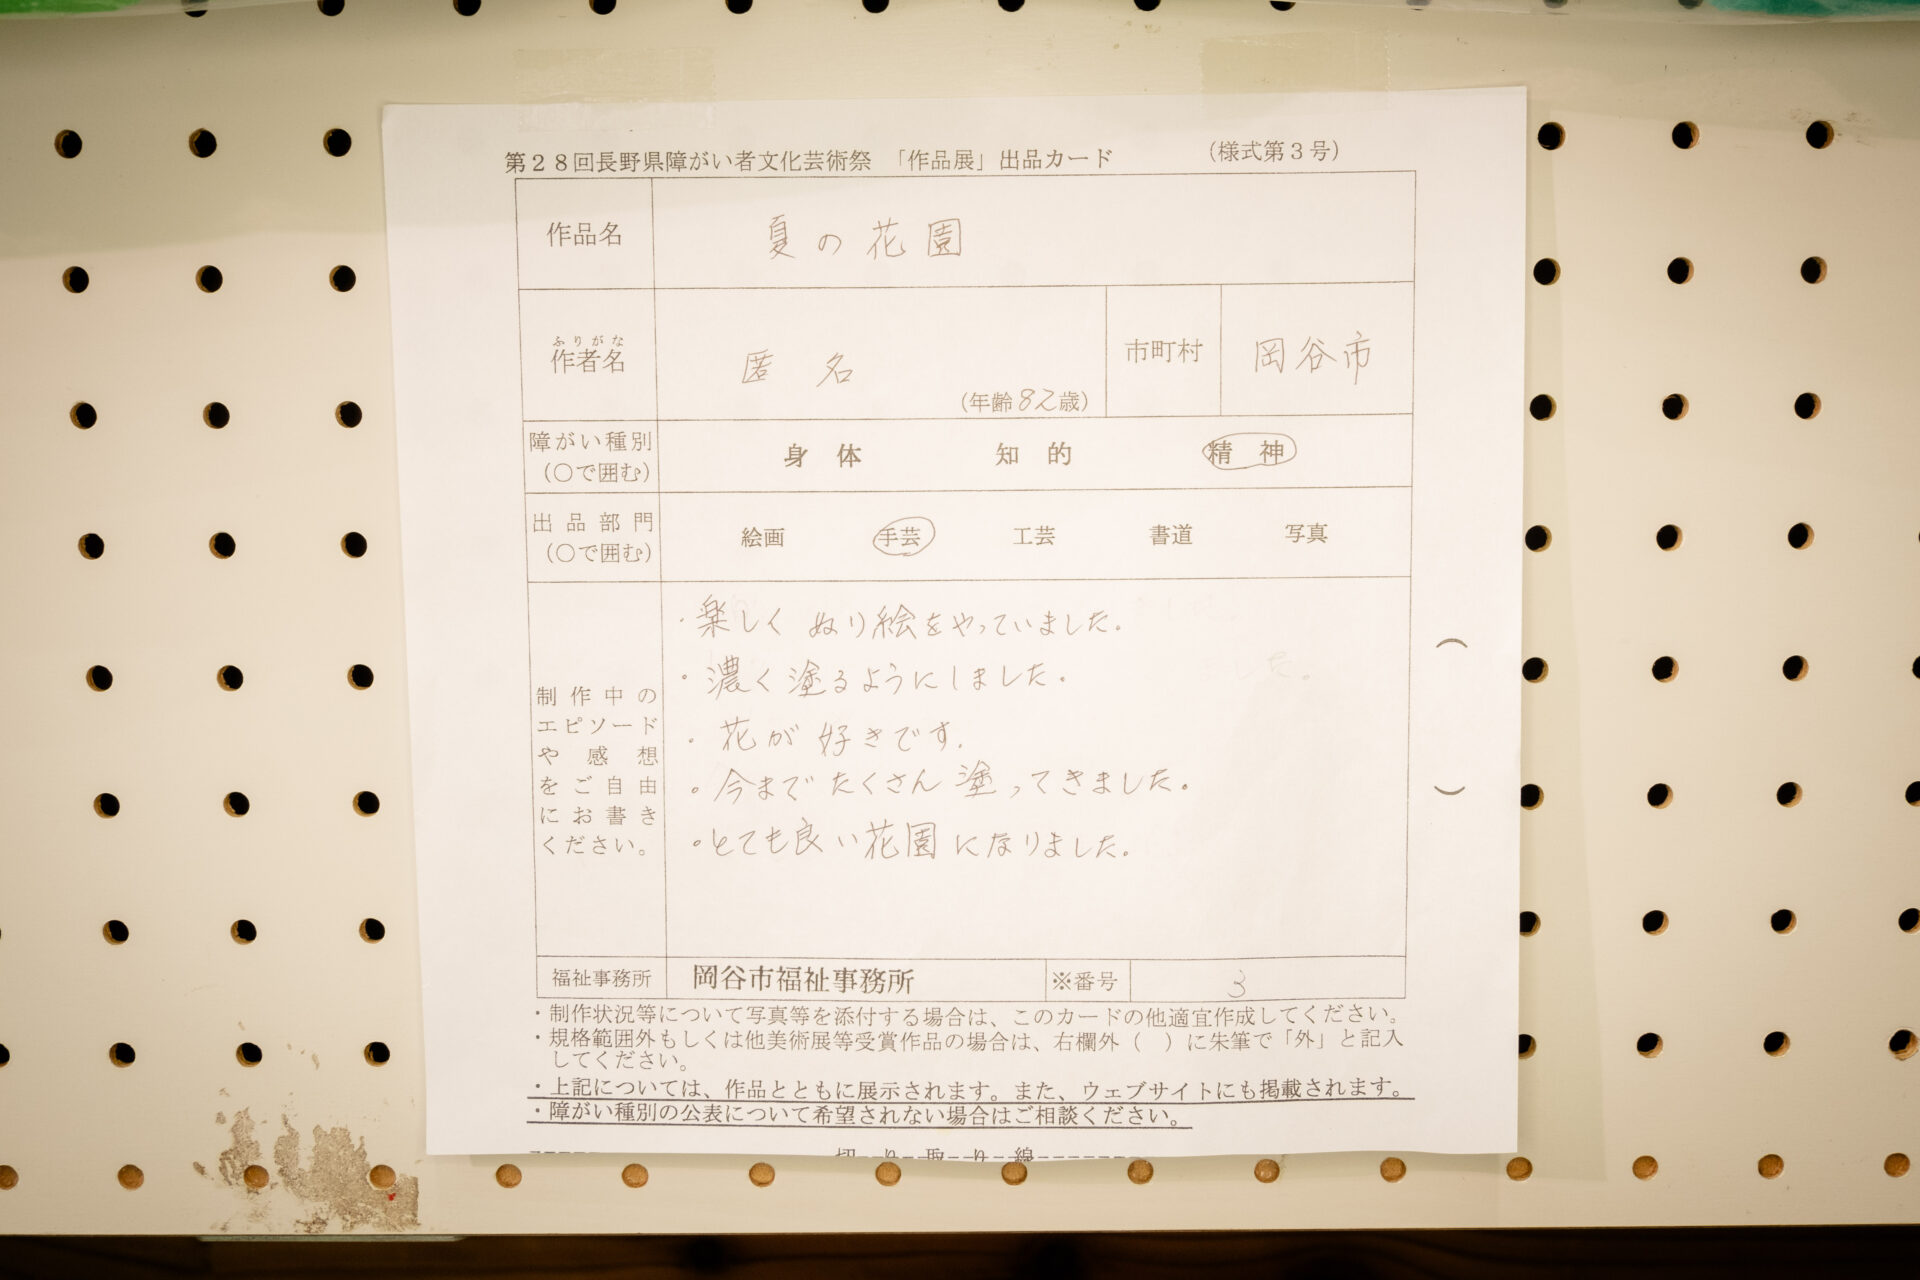 第28回長野県障がい者文化芸術祭 「作品展」出品カード (様式第3号)
作品名 夏の花園
ふりがな
作者名 匿名 (年齢82歳) 市町村 岡谷市
障がい種別 (○で囲む) 身体 知的 精神
出品部門 (○で囲む) 絵画 手芸 工芸 書道 写真
制作中の
エピソード
や感想
をご自由
にお書き
ください。
・楽しく ぬり絵をやっていました。
・濃く塗るようにしました。
・花が好きです。
・今までたくさん塗ってきました。
・とても良い花園になりました。
( )
福祉事務所 岡谷市福祉事務所 ※番号 3
・制作状況等について写真等を添付する場合は、このカードの他適宜作成してください。
・規格範囲外もしくは他美術展等受賞作品の場合は、右欄外( )に朱筆で「外」と記入
してください。
・上記については、作品とともに展示されます。また、ウェブサイトにも掲載されます。
・障がい種別の公表について希望されない場合はご相談ください。
切り取り線